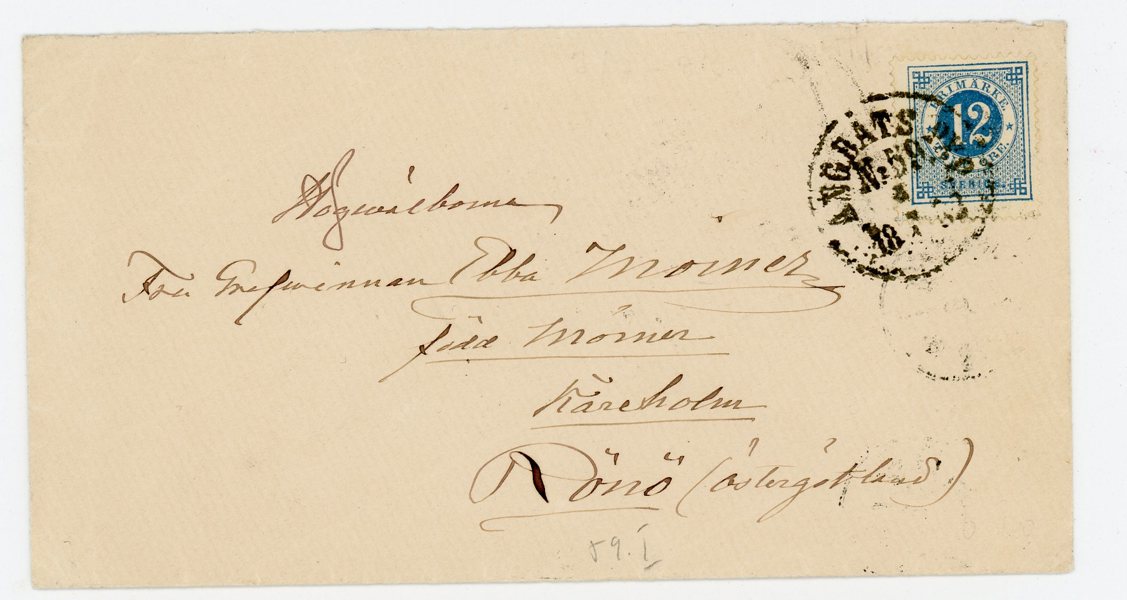 FRIMÄRKE
12
SVERIGE
ÅNGBÅTS PXP
No 59
4
7
18 82
Högwälborna
Fru Grefwinnan Ebba Mörner
född Mörner
Käreholm
Rönö (Östergötland)
59. I